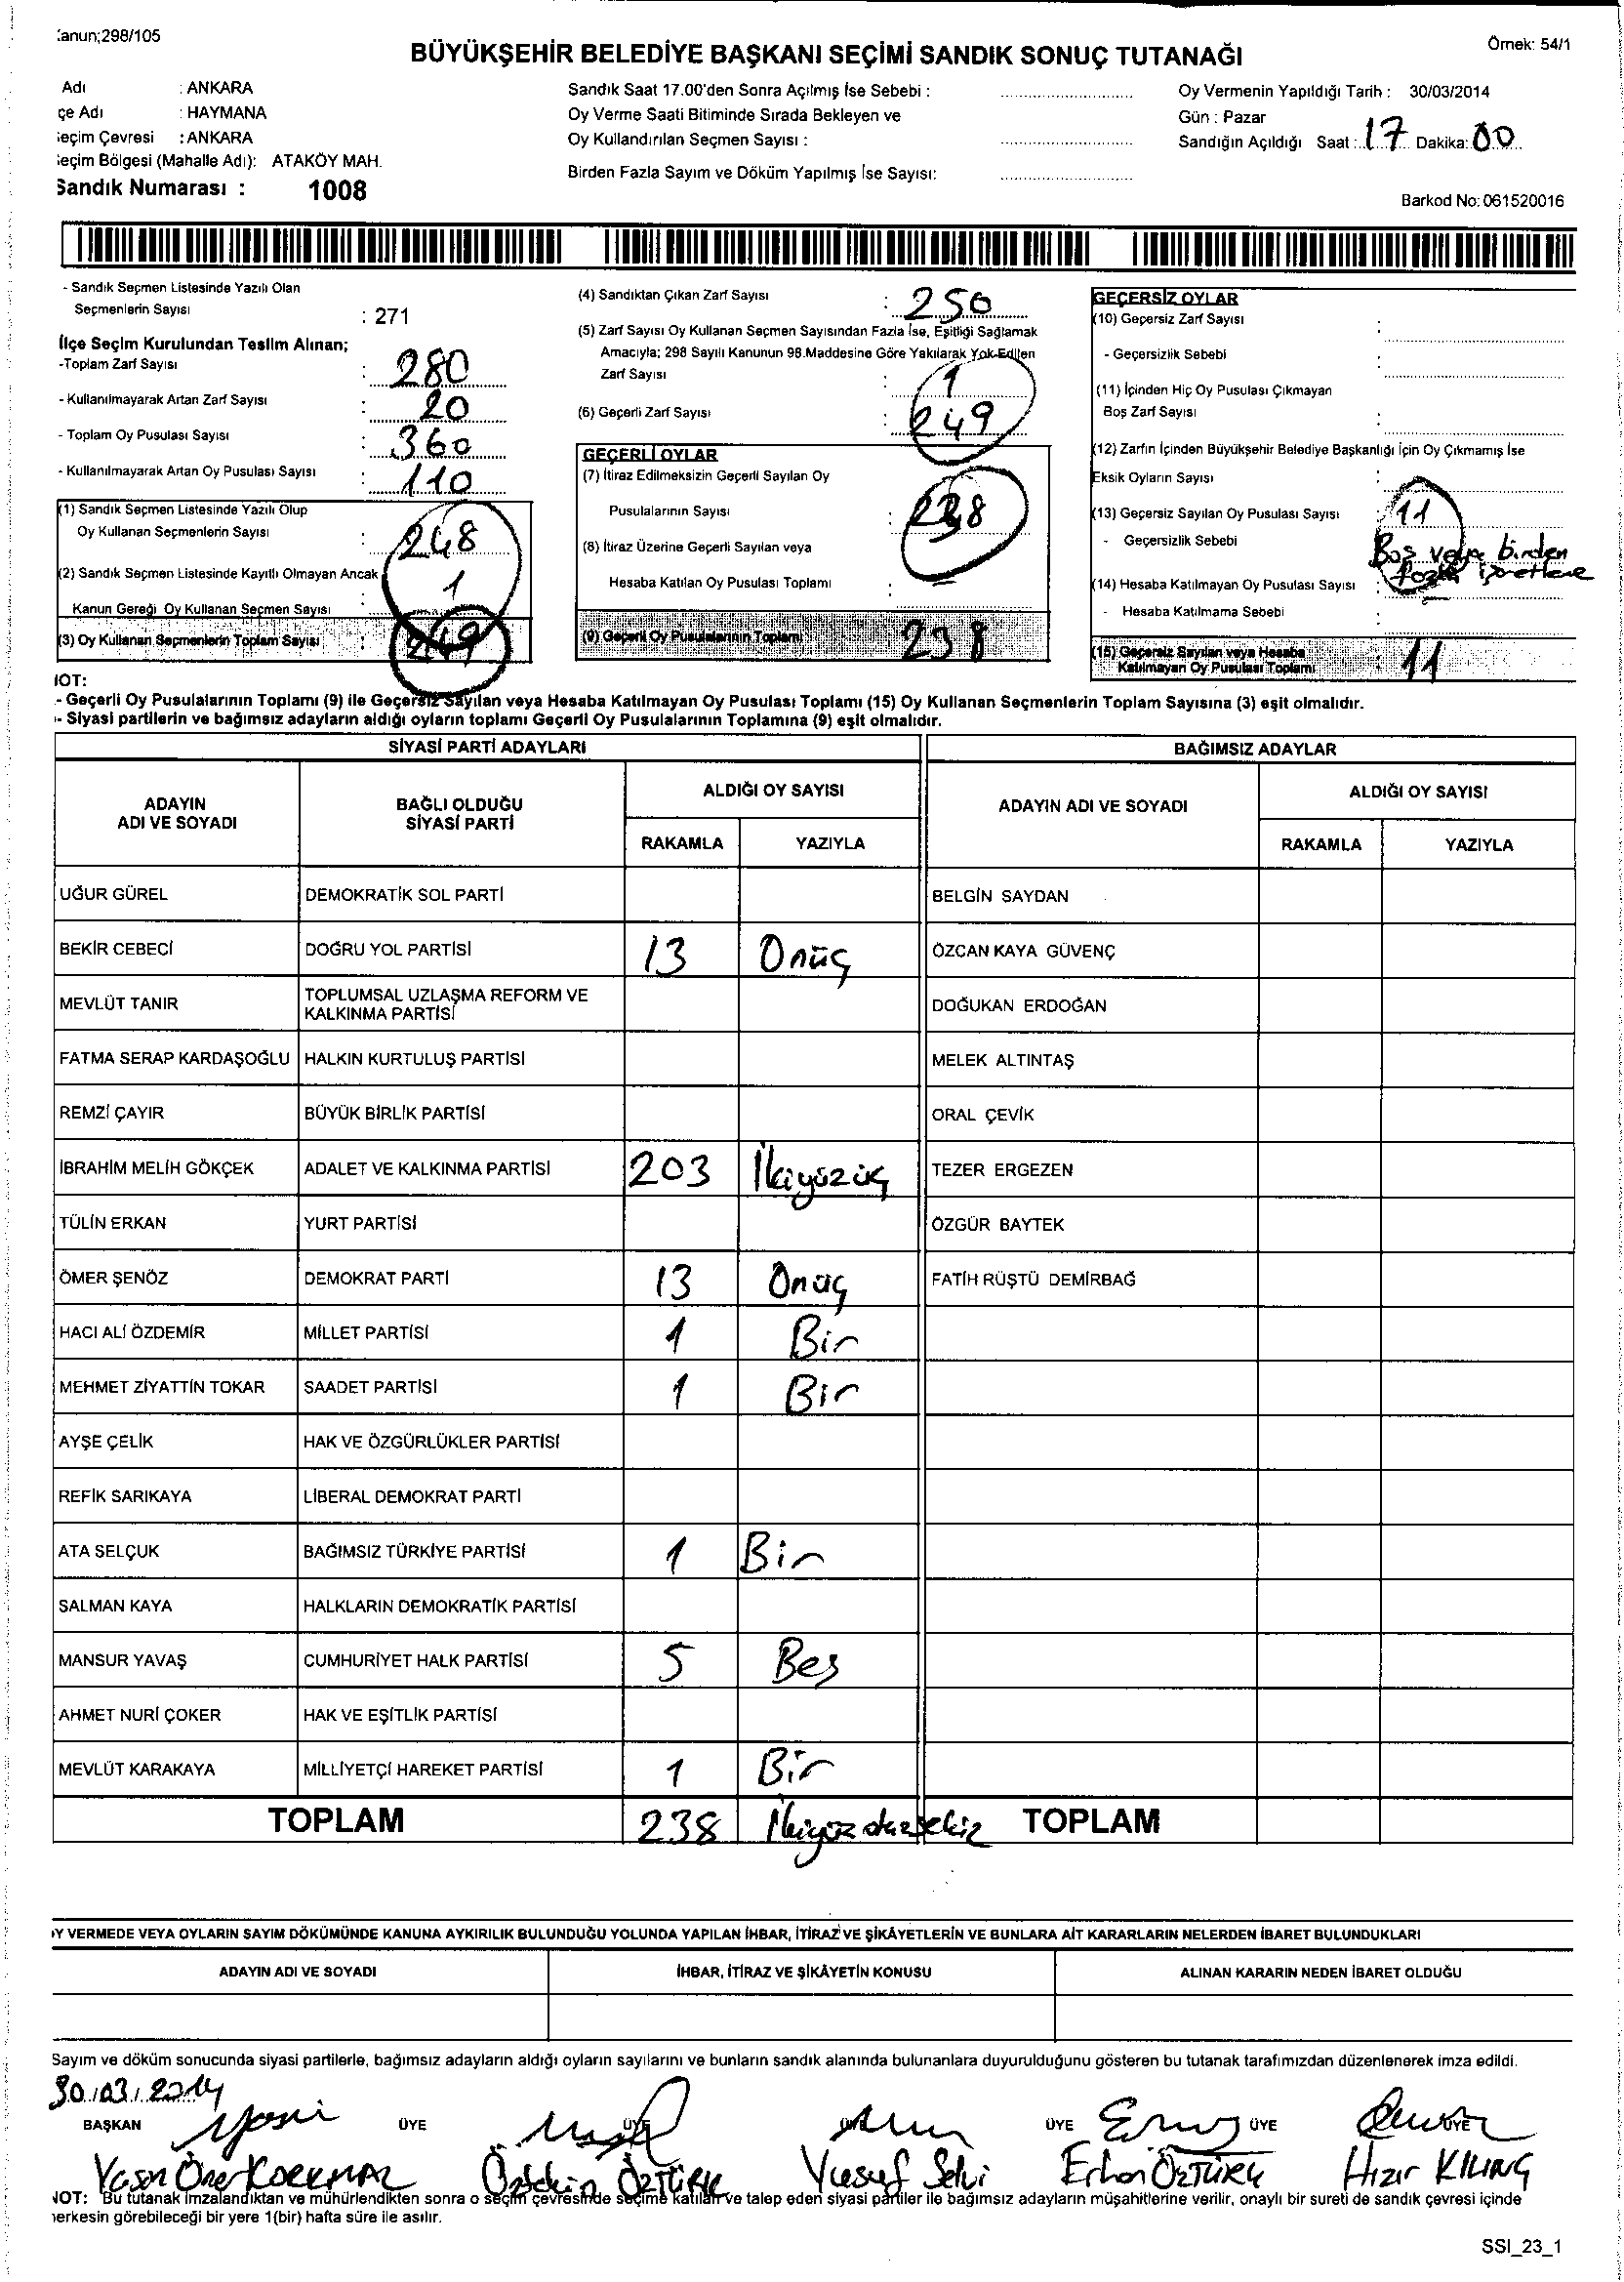 anun;298/105
Örnek: 54/1
BÜYÜKŞEHİR BELEDİYE BAŞKANI SEÇİMİ SANDIK SONUÇ TUTANAĞI
Adı : ANKARA
çe Adı : HAYMANA
eçim Çevresi : ANKARA
eçim Bölgesi (Mahalle Adı): ATAKÖY MAH.
Sandık Numarası : 1008
Sandık Saat 17.00'den Sonra Açılmış İse Sebebi :
Oy Verme Saati Bitiminde Sırada Bekleyen ve
Oy Kullandırılan Seçmen Sayısı :
Birden Fazla Sayım ve Döküm Yapılmış İse Sayısı:
Oy Vermenin Yapıldığı Tarih : 30/03/2014
Gün : Pazar
Sandığın Açıldığı Saat : 17 Dakika: 00
Barkod No: 061520016
- Sandık Seçmen Listesinde Yazılı Olan
Seçmenlerin Sayısı : 271
İlçe Seçim Kurulundan Teslim Alınan;
-Toplam Zarf Sayısı : 280
- Kullanılmayarak Artan Zarf Sayısı : 20
- Toplam Oy Pusulası Sayısı : 360
- Kullanılmayarak Artan Oy Pusulası Sayısı : 110
(1) Sandık Seçmen Listesinde Yazılı Olup
Oy Kullanan Seçmenlerin Sayısı : 248
(2) Sandık Seçmen Listesinde Kayıtlı Olmayan Ancak
Kanun Gereği Oy Kullanan Seçmen Sayısı : 1
(3) Oy Kullanan Seçmenlerin Toplam Sayısı : 249
(4) Sandıktan Çıkan Zarf Sayısı : 250
(5) Zarf Sayısı Oy Kullanan Seçmen Sayısından Fazla İse, Eşitliği Sağlamak
Amacıyla; 298 Sayılı Kanunun 98.Maddesine Göre Yakılarak Yok Edilen
Zarf Sayısı : 1
(6) Geçerli Zarf Sayısı : 249
GEÇERLİ OYLAR
(7) İtiraz Edilmeksizin Geçerli Sayılan Oy
Pusulalarının Sayısı : 238
(8) İtiraz Üzerine Geçerli Sayılan veya
Hesaba Katılan Oy Pusulası Toplamı :
(9) Geçerli Oy Pusulalarının Toplamı 238
GEÇERSİZ OYLAR
(10) Geçersiz Zarf Sayısı :
- Geçersizlik Sebebi :
(11) İçinden Hiç Oy Pusulası Çıkmayan
Boş Zarf Sayısı :
(12) Zarfın İçinden Büyükşehir Belediye Başkanlığı İçin Oy Çıkmamış İse
Eksik Oyların Sayısı :
(13) Geçersiz Sayılan Oy Pusulası Sayısı : 11
- Geçersizlik Sebebi Boş veya birden
fazla işaretleme
(14) Hesaba Katılmayan Oy Pusulası Sayısı :
- Hesaba Katılmama Sebebi :
(15) Geçersiz Sayılan veya Hesaba
Katılmayan Oy Pusulası Toplamı : 11
NOT:
- Geçerli Oy Pusulalarının Toplamı (9) ile Geçersiz Sayılan veya Hesaba Katılmayan Oy Pusulası Toplamı (15) Oy Kullanan Seçmenlerin Toplam Sayısına (3) eşit olmalıdır.
- Siyasi partilerin ve bağımsız adayların aldığı oyların toplamı Geçerli Oy Pusulalarının Toplamına (9) eşit olmalıdır.
SİYASİ PARTİ ADAYLARI BAĞIMSIZ ADAYLAR
ADAYIN ADI VE SOYADI
BAĞLI OLDUĞU SİYASİ PARTİ
ALDIĞI OY SAYISI
RAKAMLA YAZIYLA
ADAYIN ADI VE SOYADI
ALDIĞI OY SAYISI
RAKAMLA YAZIYLA
UĞUR GÜREL DEMOKRATİK SOL PARTİ BELGİN SAYDAN
BEKİR CEBECİ DOĞRU YOL PARTİSİ 13 Onüç ÖZCAN KAYA GÜVENÇ
MEVLÜT TANIR TOPLUMSAL UZLAŞMA REFORM VE KALKINMA PARTİSİ DOĞUKAN ERDOĞAN
FATMA SERAP KARDAŞOĞLU HALKIN KURTULUŞ PARTİSİ MELEK ALTINTAŞ
REMZİ ÇAYIR BÜYÜK BİRLİK PARTİSİ ORAL ÇEVİK
İBRAHİM MELİH GÖKÇEK ADALET VE KALKINMA PARTİSİ 203 İkiyüzüç TEZER ERGEZEN
TÜLİN ERKAN YURT PARTİSİ ÖZGÜR BAYTEK
ÖMER ŞENÖZ DEMOKRAT PARTİ 13 Onüç FATİH RÜŞTÜ DEMİRBAĞ
HACI ALİ ÖZDEMİR MİLLET PARTİSİ 1 Bir
MEHMET ZİYATTİN TOKAR SAADET PARTİSİ 1 Bir
AYŞE ÇELİK HAK VE ÖZGÜRLÜKLER PARTİSİ
REFİK SARIKAYA LİBERAL DEMOKRAT PARTİ
ATA SELÇUK BAĞIMSIZ TÜRKİYE PARTİSİ 1 Bir
SALMAN KAYA HALKLARIN DEMOKRATİK PARTİSİ
MANSUR YAVAŞ CUMHURİYET HALK PARTİSİ 5 Beş
AHMET NURİ ÇOKER HAK VE EŞİTLİK PARTİSİ
MEVLÜT KARAKAYA MİLLİYETÇİ HAREKET PARTİSİ 1 Bir
TOPLAM 238 İkiyüzotuzsekiz TOPLAM
Y VERMEDE VEYA OYLARIN SAYIM DÖKÜMÜNDE KANUNA AYKIRILIK BULUNDUĞU YOLUNDA YAPILAN İHBAR, İTİRAZ VE ŞİKÂYETLERİN VE BUNLARA AİT KARARLARIN NELERDEN İBARET BULUNDUKLARI
ADAYIN ADI VE SOYADI İHBAR, İTİRAZ VE ŞİKÂYETİN KONUSU ALINAN KARARIN NEDEN İBARET OLDUĞU
Sayım ve döküm sonucunda siyasi partilerle, bağımsız adayların aldığı oyların sayılarını ve bunların sandık alanında bulunanlara duyurulduğunu gösteren bu tutanak tarafımızdan düzenlenerek imza edildi.
30/03/2014
BAŞKAN ÜYE ÜYE ÜYE ÜYE ÜYE ÜYE
Yasin Öner KORKMAZ Özbekin ÖZTÜRK Yusuf Selvi Erhan ÖZTÜRK Hızır KILINÇ
NOT: Bu tutanak imzalandıktan ve mühürlendikten sonra o seçim çevresinde seçime katılan ve talep eden siyasi partiler ile bağımsız adayların müşahitlerine verilir, onaylı bir sureti de sandık çevresi içinde
herkesin görebileceği bir yere 1(bir) hafta süre ile asılır.
SSI_23_1